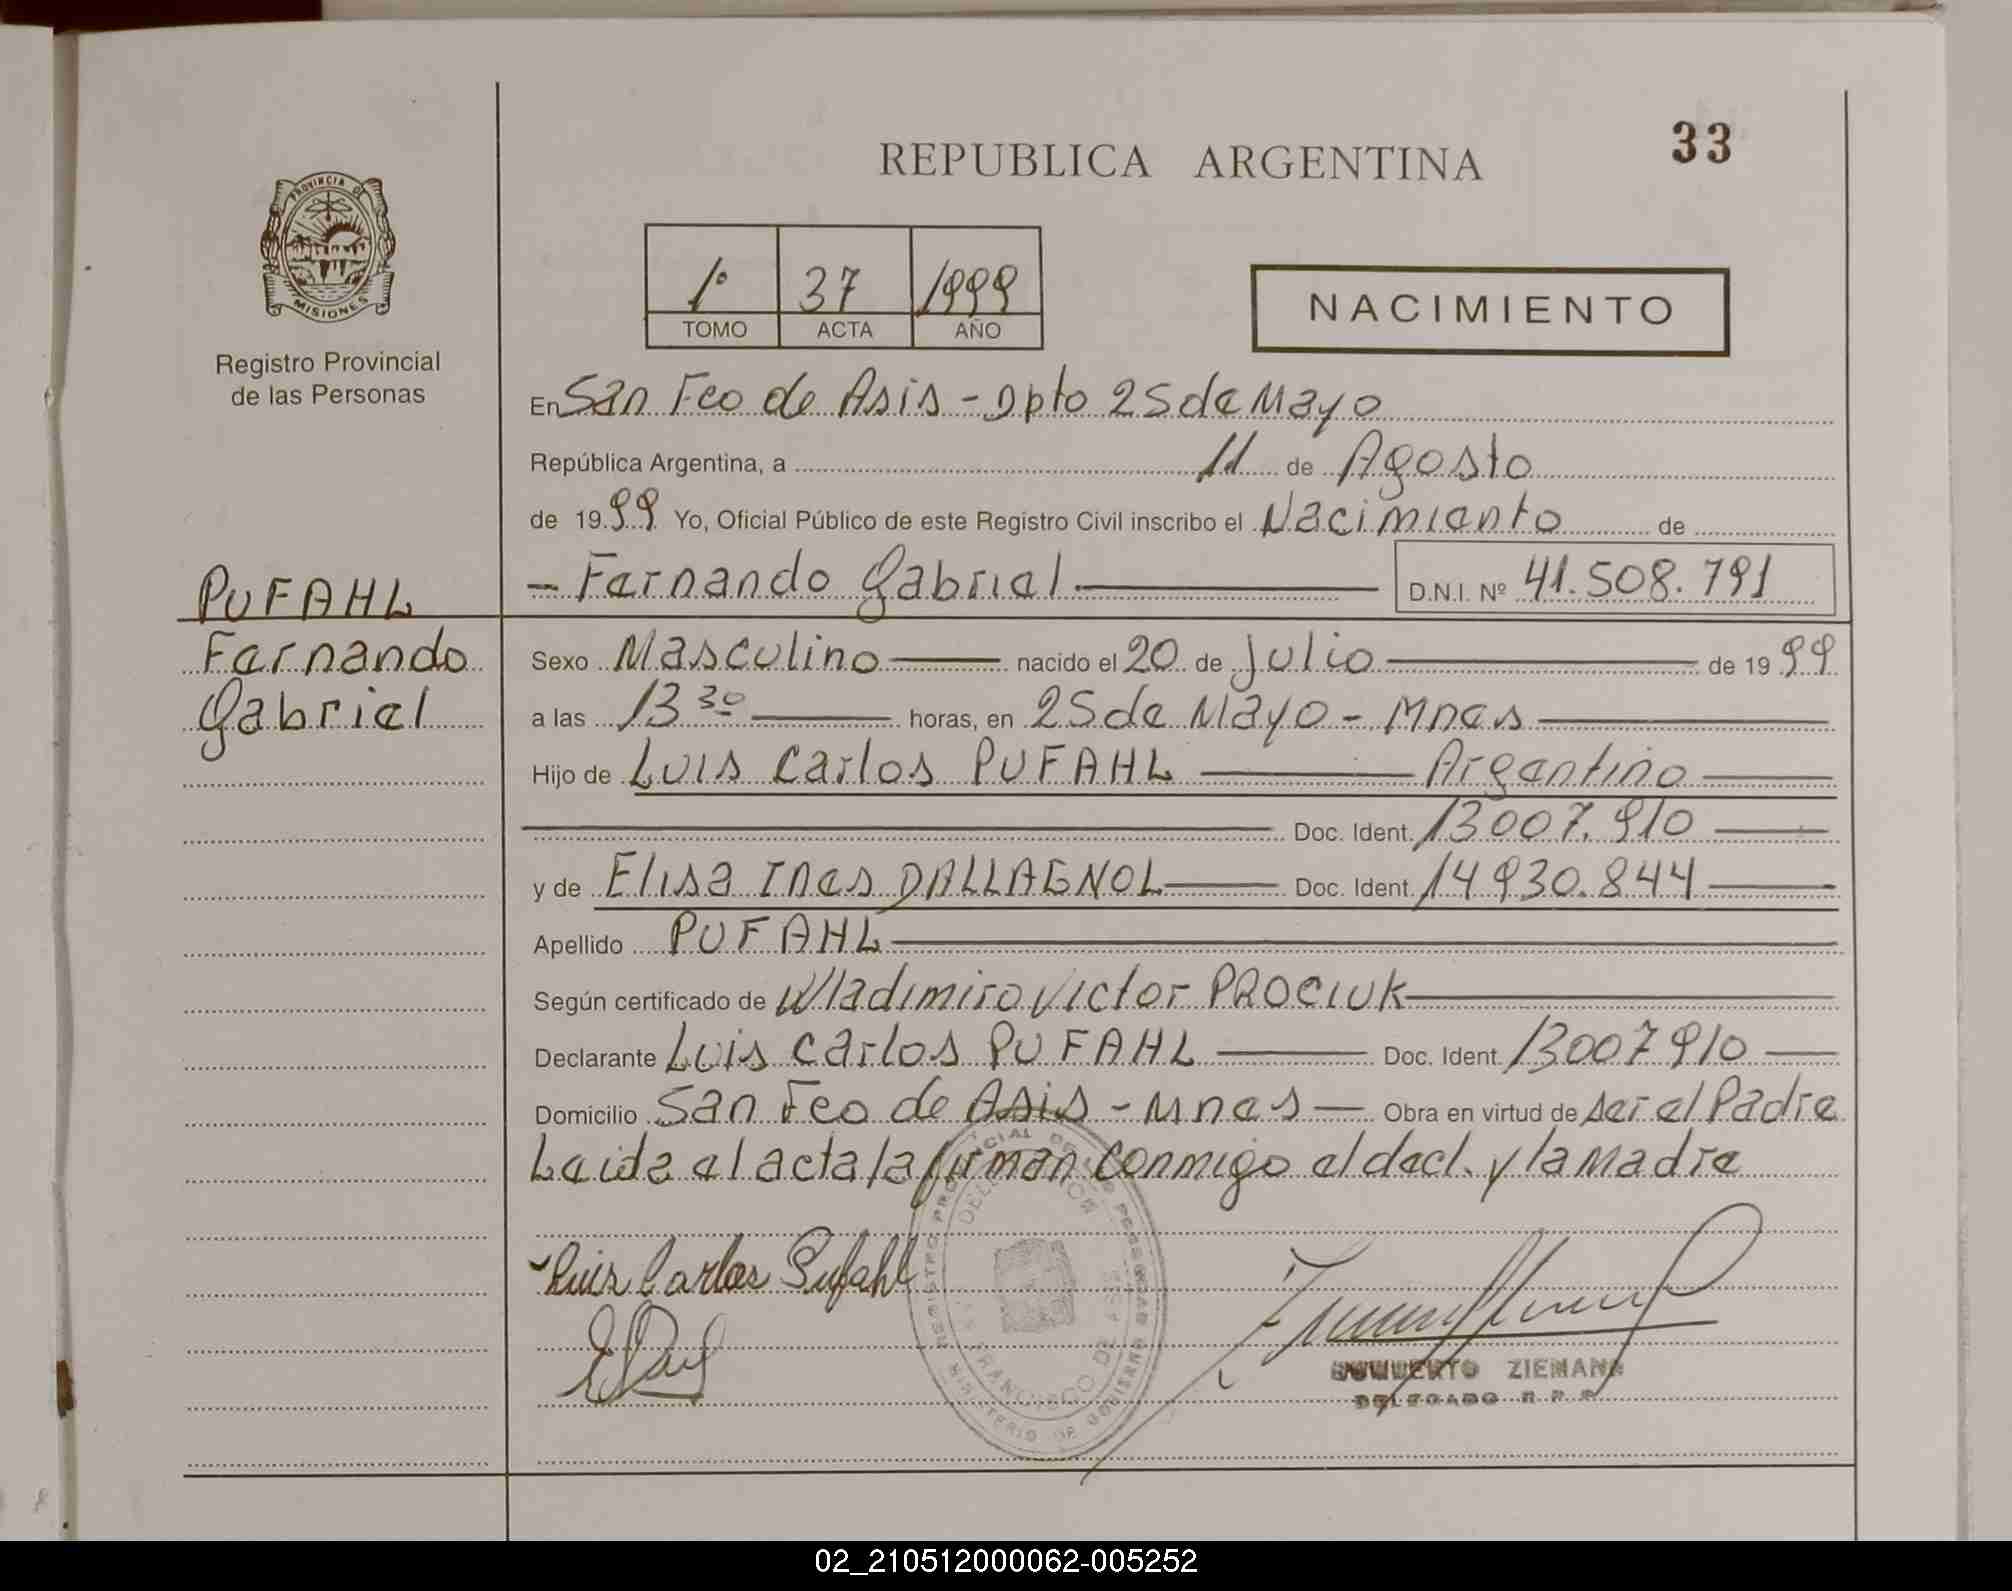 REPUBLICA ARGENTINA
33
PROVINCIA DE
MISIONES
Registro Provincial
de las Personas
1º 37 1999
TOMO ACTA AÑO
NACIMIENTO
En San Fco de Asis - Dpto 25 de Mayo
República Argentina, a 11 de Agosto
de 1999 Yo, Oficial Público de este Registro Civil inscribo el Nacimiento de
PUFAHL
- Fernando Gabriel D.N.I. Nº 41.508.791
Fernando
Sexo Masculino nacido el 20 de Julio de 1999
Gabriel
a las 13 30 horas, en 25 de Mayo - Mnes
Hijo de Luis Carlos PUFAHL Argentino
Doc. Ident. 13007.910
y de Elisa Ines DALLAGNOL Doc. Ident. 14930.844
Apellido PUFAHL
Según certificado de Wladimiro Victor PROCIUK
Declarante Luis Carlos PUFAHL Doc. Ident. 13007910
Domicilio San Fco de Asis - Mnes Obra en virtud de ser el Padre
Leida el acta la firman conmigo el decl. y la Madre
Luis Carlos Pufahl
ZIEMANN
DELEGADO R.P.P.
02_210512000062-005252